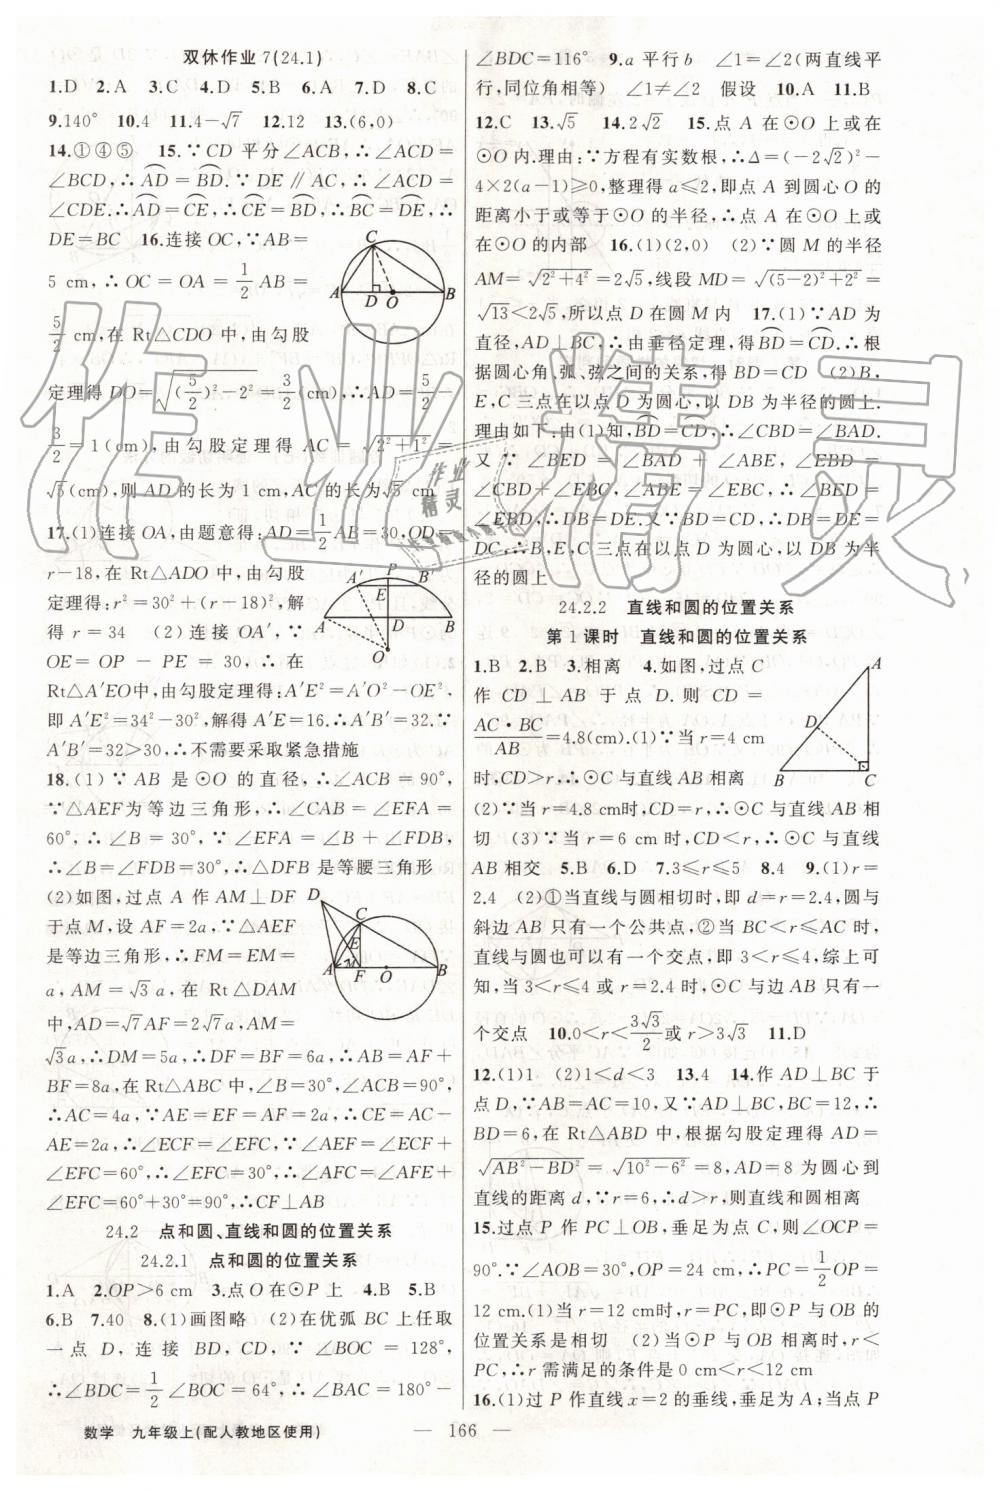 双休作业7(24.1)
1.D 2.A 3.C 4.D 5.B 6.A 7.D 8.C
9.140° 10.4 11.4-√7 12.12 13.(6,0)
14.①④⑤ 15.∵CD 平分∠ACB,∴∠ACD=
∠BCD,∴AD⌒=BD⌒.∵DE∥AC,∴∠ACD=
∠CDE.∴AD⌒=CE⌒,∴CE⌒=BD⌒,∴BC⌒=DE⌒,∴
DE=BC 16.连接OC,∵AB=
5 cm,∴OC=OA=1/2 AB=
5/2 cm,在 Rt△CDO 中,由勾股
定理得DO=√((5/2)²-2²)=3/2(cm),∴AD=5/2-
3/2=1(cm),由勾股定理得 AC=√(2²+1²)=
√5(cm),则AD的长为1 cm,AC的长为√5 cm
17.(1)连接OA,由题意得:AD=1/2AB=30,OD=
r-18,在 Rt△ADO 中,由勾股
定理得:r²=30²+(r-18)²,解
得 r=34 (2)连接 OA′,∵
OE=OP-PE=30,∴在
Rt△A′EO中,由勾股定理得:A′E²=A′O²-OE²,
即A′E²=34²-30²,解得A′E=16.∴A′B′=32.∵
A′B′=32>30,∴不需要采取紧急措施
18.(1)∵AB是⊙O的直径,∴∠ACB=90°,
∵△AEF为等边三角形,∴∠CAB=∠EFA=
60°,∴∠B=30°,∵∠EFA=∠B+∠FDB,
∴∠B=∠FDB=30°,∴△DFB是等腰三角形
(2)如图,过点 A 作 AM⊥DF
于点 M,设 AF=2a,∵△AEF
是等边三角形,∴FM=EM=
a,AM=√3a,在 Rt△DAM
中,AD=√7AF=2√7a,AM=
√3a,∴DM=5a,∴DF=BF=6a,∴AB=AF+
BF=8a,在Rt△ABC中,∠B=30°,∠ACB=90°,
∴AC=4a,∵AE=EF=AF=2a,∴CE=AC-
AE=2a,∴∠ECF=∠EFC,∵∠AEF=∠ECF+
∠EFC=60°,∴∠EFC=30°,∴∠AFC=∠AFE+
∠EFC=60°+30°=90°,∴CF⊥AB
24.2 点和圆、直线和圆的位置关系
24.2.1 点和圆的位置关系
1.A 2.OP>6 cm 3.点O在⊙P上 4.B 5.B
6.B 7.40 8.(1)画图略 (2)在优弧BC上任取
一点 D,连接 BD,CD,∵∠BOC=128°,
∴∠BDC=1/2∠BOC=64°,∴∠BAC=180°-
∠BDC=116° 9.a平行b ∠1=∠2(两直线平
行,同位角相等) ∠1≠∠2 假设 10.A 11.B
12.C 13.√5 14.2√2 15.点A在⊙O上或在
⊙O内.理由:∵方程有实数根,∴Δ=(-2√2)²-
4×2(a-1)≥0,整理得a≤2,即点A到圆心O的
距离小于或等于⊙O的半径,∴点A在⊙O上或
在⊙O的内部 16.(1)(2,0) (2)∵圆M的半径
AM=√(2²+4²)=2√5,线段MD=√((5-2)²+2²)=
√13<2√5,所以点D在圆M内 17.(1)∵AD为
直径,AD⊥BC,∴由垂径定理,得BD⌒=CD⌒.∴根
据圆心角、弧、弦之间的关系,得BD=CD (2)B,
E,C三点在以点D为圆心,以DB为半径的圆上.
理由如下:由(1)知,BD⌒=CD⌒,∴∠CBD=∠BAD.
又∵∠BED=∠BAD+∠ABE,∠EBD=
∠CBD+∠EBC,∠ABE=∠EBC,∴∠BED=
∠EBD,∴DB=DE.又∵BD=DC,∴DB=DE=
DC,∴B、E,C三点在以点D为圆心,以DB为半
径的圆上
24.2.2 直线和圆的位置关系
第1课时 直线和圆的位置关系
1.B 2.B 3.相离 4.如图,过点C
作 CD⊥AB 于点 D.则 CD=
AC·BC/AB=4.8(cm).(1)∵当r=4 cm
时,CD>r,∴⊙C与直线AB相离
(2)∵当r=4.8 cm时,CD=r,∴⊙C与直线AB相
切 (3)∵当r=6 cm时,CD<r,∴⊙C与直线
AB相交 5.B 6.D 7.3≤r≤5 8.4 9.(1)r=
2.4 (2)①当直线与圆相切时,即d=r=2.4,圆与
斜边AB只有一个公共点,②当BC<r≤AC时,
直线与圆也可以有一个交点,即3<r≤4,综上可
知,当3<r≤4或r=2.4时,圆与边AB只有一
个交点 10.0<r<3√3/2或r>3√3 11.D
12.(1)1 (2)1<d<3 13.4 14.作AD⊥BC于
点D,∵AB=AC=10,又∵AD⊥BC,BC=12,∴
BD=6,在Rt△ABD中,根据勾股定理得AD=
√(AB²-BD²)=√(10²-6²)=8,AD=8为圆心到
直线的距离d,∵r=6,∴d>r,则直线和圆相离
15.过点P作PC⊥OB,垂足为点C,则∠OCP=
90°.∵∠AOB=30°,OP=24 cm,∴PC=1/2OP=
12 cm.(1)当r=12 cm时,r=PC,即⊙P与OB的
位置关系是相切 (2)当⊙P与OB相离时,r<
PC,∴r需满足的条件是0 cm<r<12 cm
16.(1)过P作直线x=2的垂线,垂足为A;当点P
数学 九年级上(配人教地区使用)
— 166 —
作业精灵